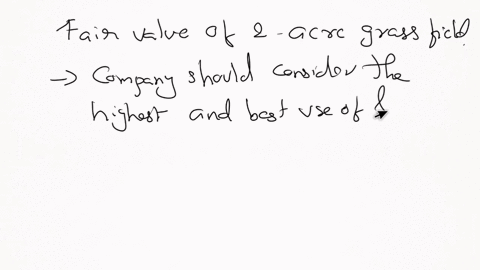 Fair value of 2-acre grass field.
→ Company should consider the
highest and best use of